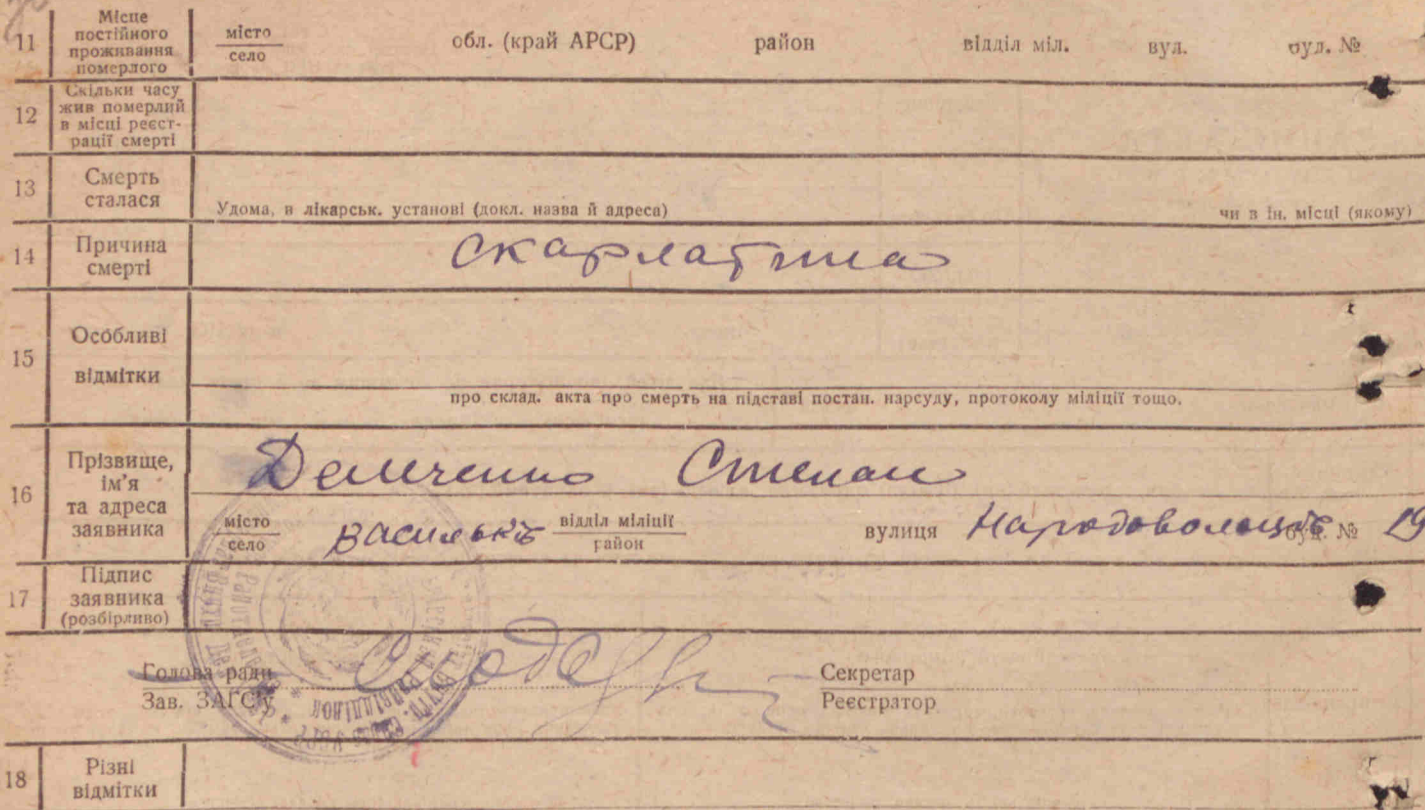 11 Місце постійного проживання померлого місто село обл. (край АРСР) район відділ міл. вул. буд. №
12 Скільки часу жив померлий в місці реєст-рації смерті
13 Смерть сталася Удома, в лікарськ. установі (докл. назва й адреса) чи в ін. місці (якому)
14 Причина смерті скарлатина
15 Особливі відмітки
про склад. акта про смерть на підставі постан. нарсуду, протоколу міліції тощо.
16 Прізвище, ім'я та адреса заявника Демченко Степан
місто село Васильків відділ міліції район вулиця Народовольців буд. № 19
17 Підпис заявника (розбірливо)
Голова ради Секретар
Зав. ЗАГС'у Реєстратор
18 Різні відмітки